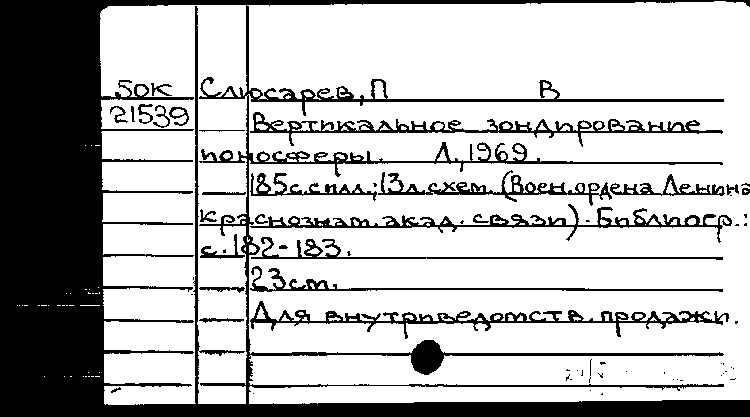 50К Слюсарев, П В
21539 Вертикальное зондирование
ионосферы. Л., 1969.
185с. с илл.; 13л. схем. (Воен. ордена Ленина
краснознам. акад. связи). Библиогр.:
с. 182-183.
23см.
Для внутриведомств. продажи.